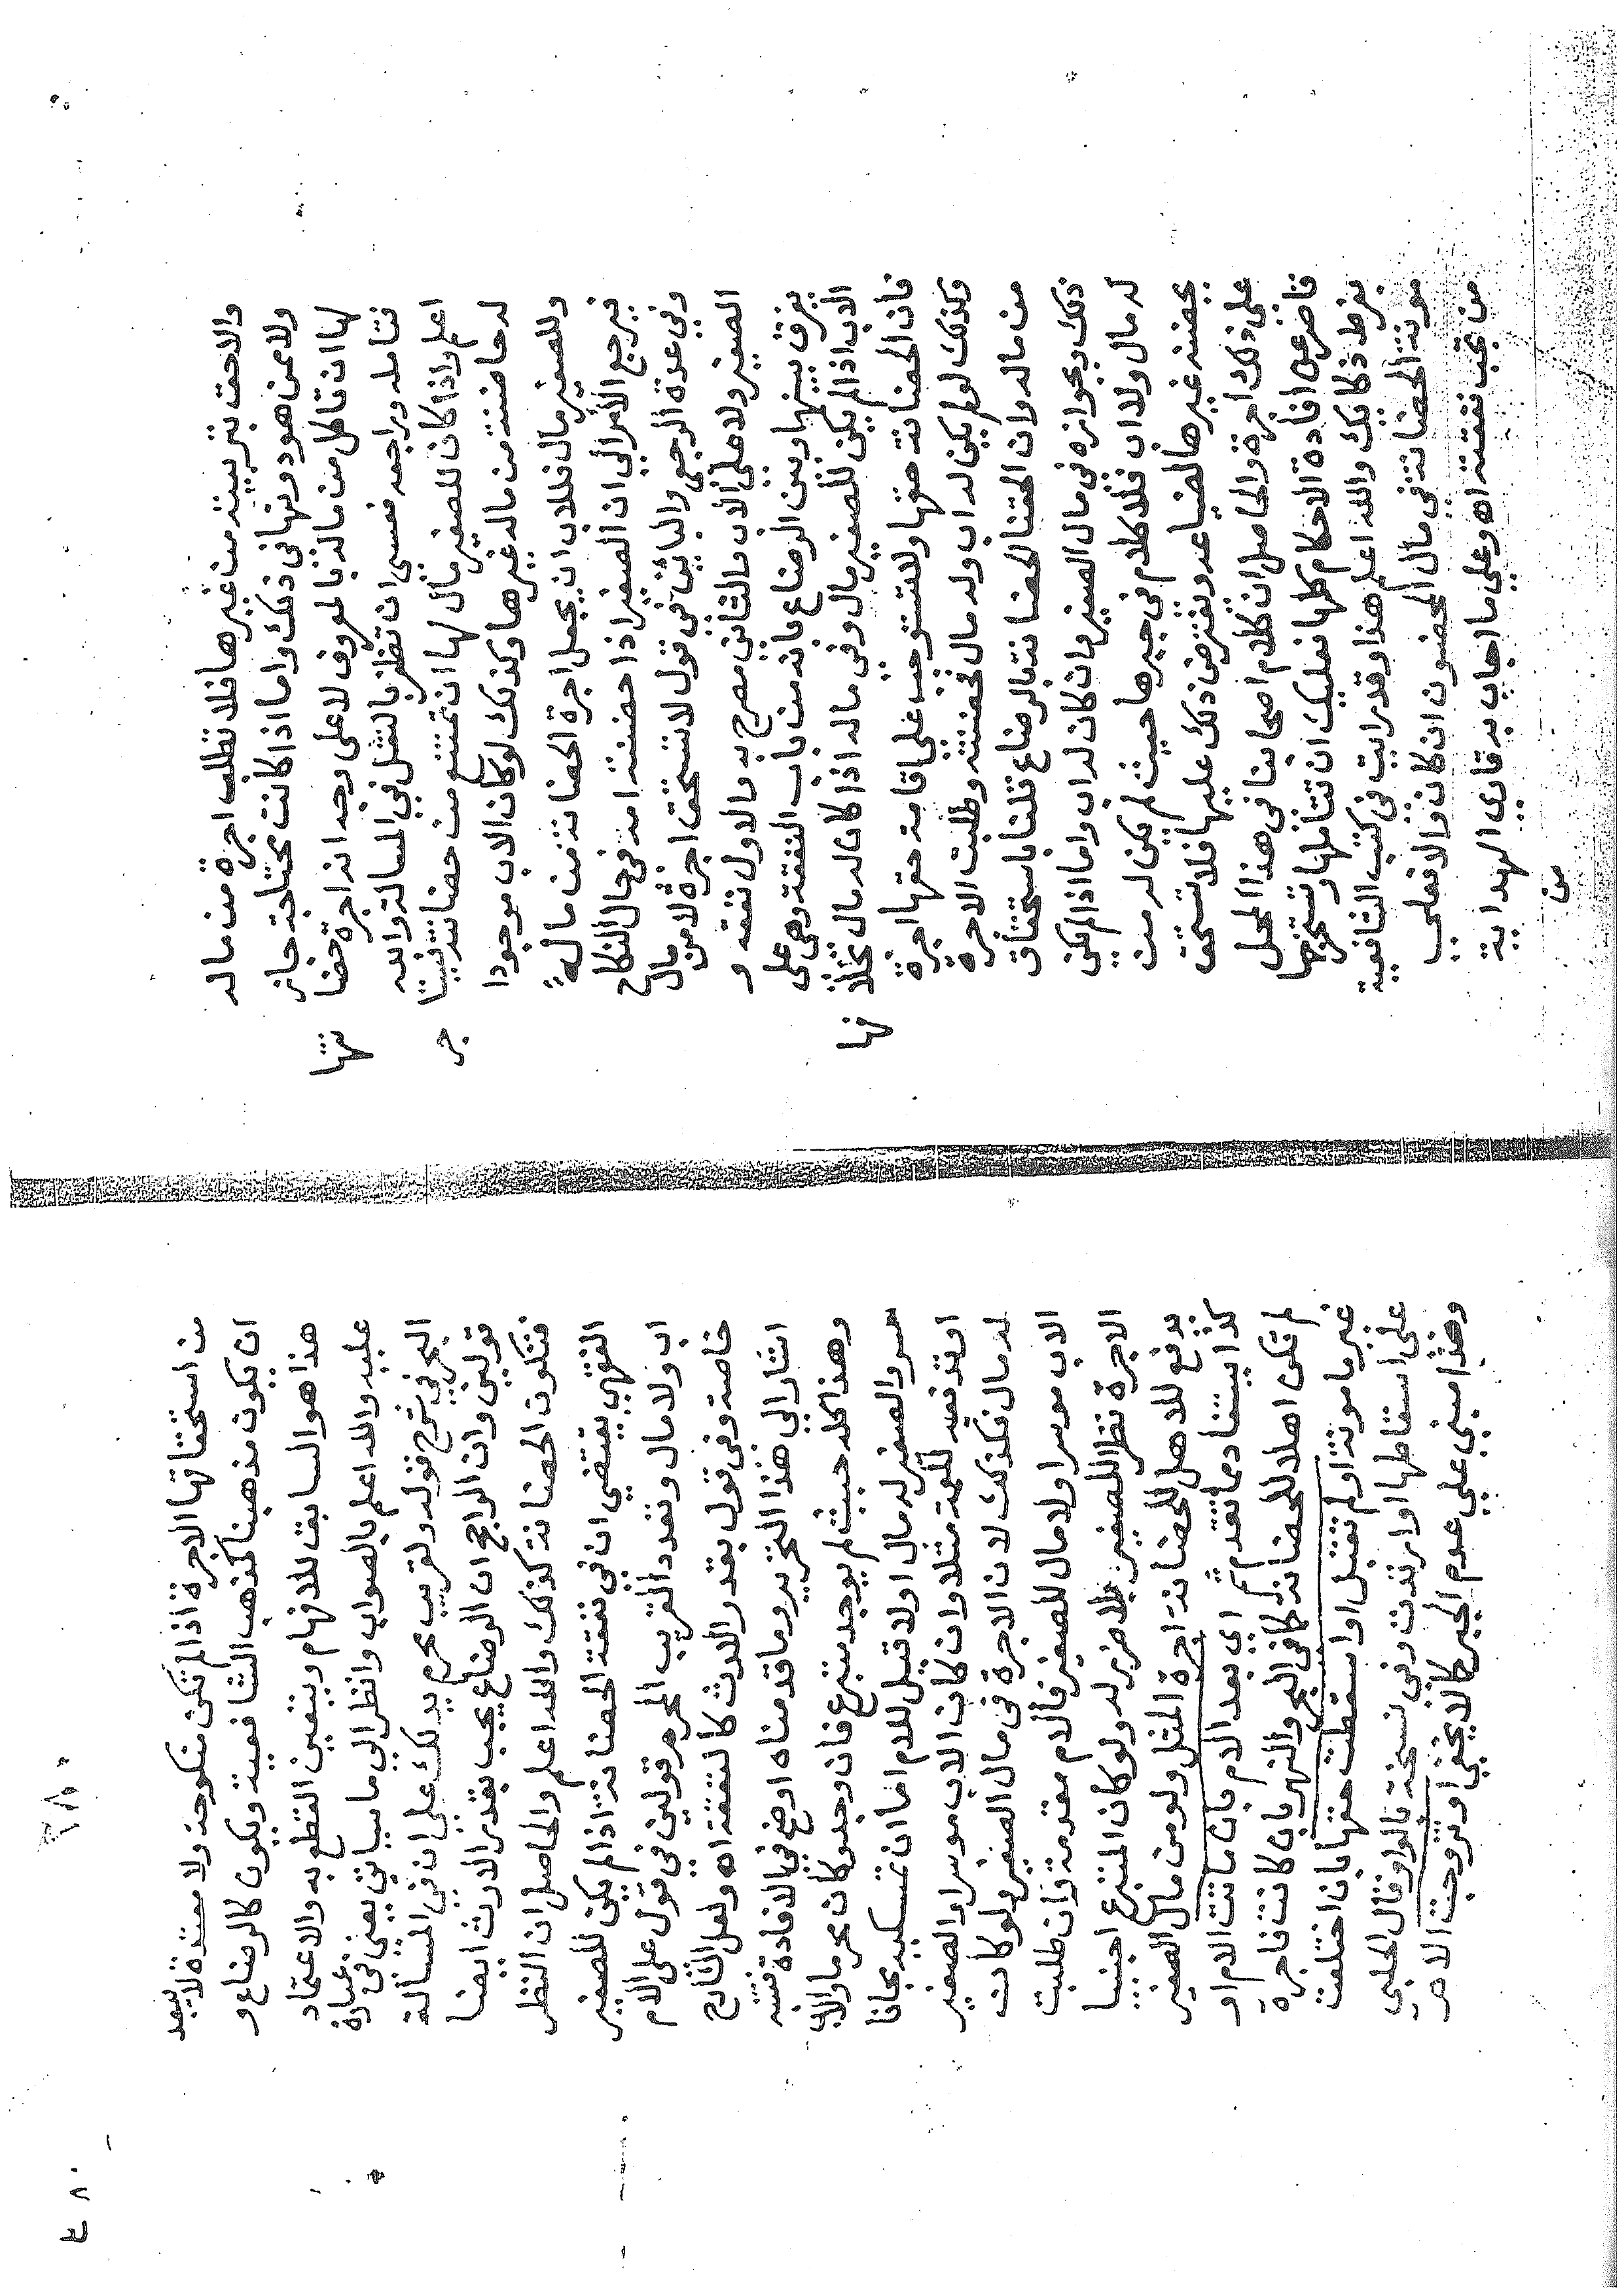 والاحق بتربيته من غيرها فلا تطلب اجرة من ماله
ولا ممن هو دونها في ذلك واما اذا كانت محتاجة جاز
لها ان تاكل من ماله بالمعروف لا على وجه انه اجرة حضا
نتها
فتامله وراجعه فعسى ان تظفر بالنقل في المسالة والله
اعلم واذا كان للصغير مال لها ان تمتنع من حضانته فيستا
جر
له حاضنته من ماله غيرها وكذلك لو كان الاب موجودا
وللصغير مال فللاب ان يجعل اجرة الحضانة من ماله
فيرجع الأمر الى ان الصغير اذا حضنته امه في حال النكاح
وفي عدة الرجعي والبائن في قول لا تستحق اجرة لا من مال
الصغير ولا على الاب والثاني مصرح به والاول تفقه و
يفرق بينها وبين الرضاع بانه من باب النفقة وهي على
الاب اذا لم يكن للصغير مال وفي ماله اذا كان له مال بخلا
فها
فان الحضانة حقها ولا تستوجب على اقامة حقها اجرة
وكذلك لو لم يكن له اب وله مال فحضنته وطلبت الاجرة
من ماله وان الحقنا الحضانة بالرضاع قلنا باستحقاق
ذلك وبجوازه في مال الصغير وان كان له اب واما اذا لم يكن
له مال ولا اب فلا كلام في جبرها حيث لم يكن له من
يحضنه غيرها لضياعه ويفترض ذلك عليها فلا تستحق
على ذلك اجرة والحاصل ان كلام اصحابنا في هذا المحل
قاصر عن افادة الاحكام كلها فعليك ان تتاملها وتستخرجها
بفرط ذكائك والله اعلم هذا وقد رايت في كتب الشافعية
مونة الحضانة في مال المحضون ان كان والا فعلى
من تجب نفقته اه وعلى ما اجاب به قاري الهداية
من
٤٨٠
من استحقاقها الاجرة اذا لم تكن منكوحة ولا معتدة لا يبعد
ان يكون مذهبنا كمذهب الشافعية ويكون كالرضاع و
هذا هو السابق للافهام ويتعين القطع به والاعتماد
عليه والله اعلم بالصواب وانظر الى ما سياتي يعني في عبارة
البحر في شرح قوله ولقريب محرم يدلك على ان في المسالة
قولين وان الراجح ان الرضاع يجب بقدر الارث ايضا
فتكون الحضانة كذلك والله اعلم والحاصل ان النظر
الفقهي يقتضي ان في نفقة الحضانة اذا لم يكن للصغير
اب ولا مال وتعدد القريب المحرم قولين في قول على الام
خاصة وفي قول بقدر الارث كالنفقة اه ولعل الشارح
اشار الى هذا التحرير وما قدمناه اوضح في الافادة تنبه
وهذا كله حيث لم يوجد متبرع فان وجد وكان محرما والاب
معسر والصغير له مال اولا قيل للام اما ان تمسكيه مجانا
او تدفعيه للعمة مثلا وان كان الاب موسرا والصغير
له مال فكذلك لان الاجرة في مال الصغير ولو كان
الاب موسرا ولا مال للصغير فالام مقدمة وان طلبت
الاجرة نظرا للصغير بلا ضرر له ولو كان المتبرع اجنبيا
يدفع للاهل للحضانة اجرة المثل ولو من مال الصغير
كذا يستفاد مما تقدم ثم اي بعد الام بان ماتت الام او
لم تكن اهلا للحضانة كما في البحر والنهر بان كانت فاجرة
غير مامونة او لم تقبل او اسقطت حقها بان اختلعت
على اسقاطها او ارتدت وفي نسخة بالواو قال الحلبي
وهذا مبني على عدم الجبر كما لا يخفى او تزوجت الام